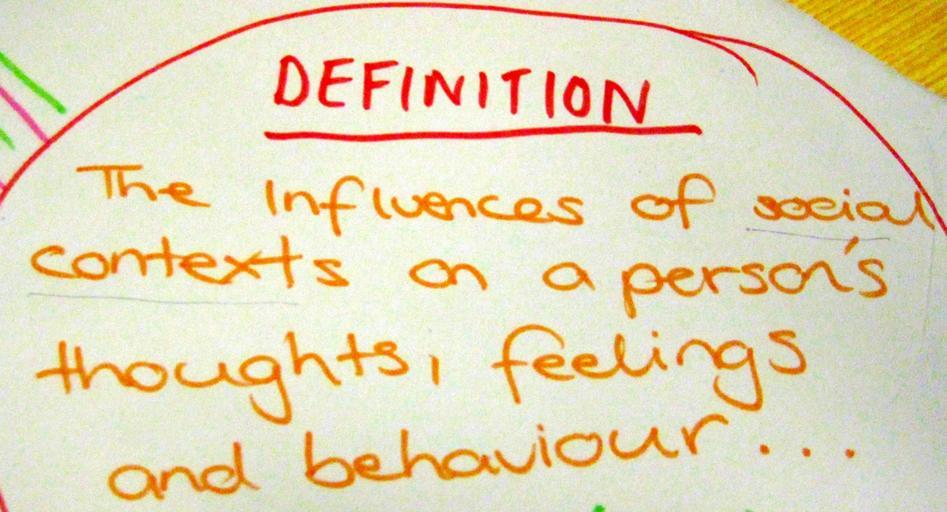 DEFINITION
The Influences of social
contexts on a person's
thoughts, feelings
and behaviour...